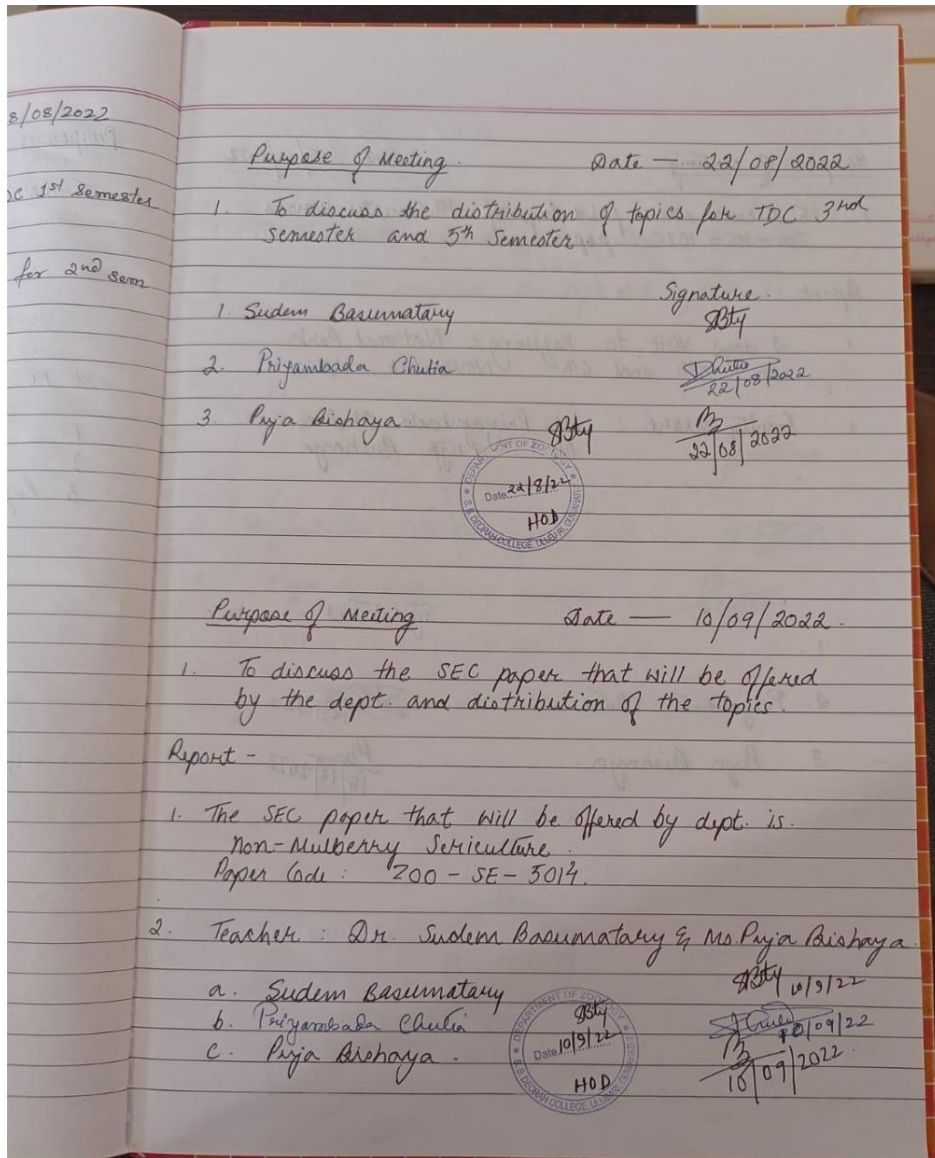 8/08/2022
1st Semester
for 2nd sem
Purpose of Meeting. Date — 22/08/2022
1. To discuss the distribution of topics for TDC 3rd
semester and 5th Semester.
Signature.
1. Sudem Basumatary SBty
2. Priyambada Chutia DChutia
22/08/2022
3. Puja Bishaya
22/08/2022
SBty
DEPARTMENT OF ZOOLOGY
Date 22/8/22
HOD
S. B. DEORAH COLLEGE, ULUBARI, GUWAHATI
Purpose of Meeting Date — 10/09/2022.
1. To discuss the SEC paper that will be offered
by the dept. and distribution of the topics.
Report -
1. The SEC paper that will be offered by dept. is.
Non-Mulberry Sericulture.
Paper Code : ZOO - SE - 5014.
2. Teacher : Dr. Sudem Basumatary & Ms. Puja Bishaya.
a. Sudem Basumatary SBty 10/9/22
b. Priyambada Chutia 10/09/22
c. Puja Bishaya.
10/09/2022
DEPARTMENT OF ZOOLOGY
SBty
Date 10/9/22
HOD
S. B. DEORAH COLLEGE, ULUBARI, GUWAHATI